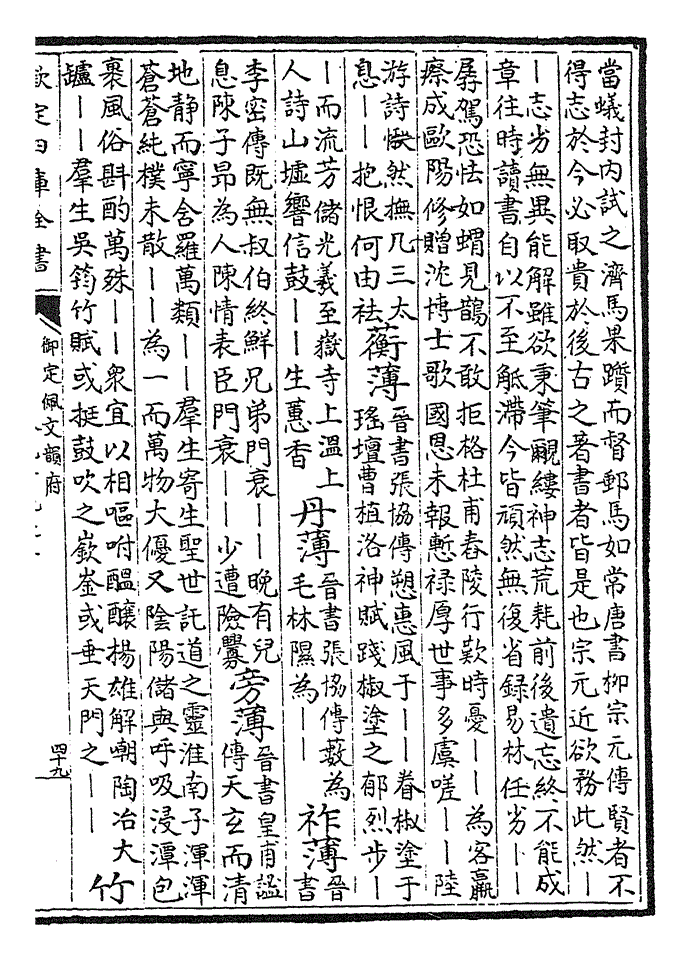 當蟻封内試之濟馬果躓而督郵馬如常唐書栁宗元傳賢者不
得志於今必取貴於後古之著書者皆是也宗元近欲務此然丨
丨志劣無異能解雖欲秉筆覼縷神志荒耗前後遺忘終不能成
章往時讀書自以不至觝滯今皆頑然無復省録易林任劣丨丨
孱駕恐怯如蝟見鵲不敢拒格杜甫舂陵行歎時憂丨丨為客羸
瘵成歐陽修贈沈博士歌國恩未報慙禄厚世事多虞嗟丨丨陸
游詩愀然撫几三太
息丨丨抱恨何由袪
蘅薄
晉書張協傳愬惠風于丨丨眷椒塗于
瑤壇曹植洛神賦踐椒塗之郁烈步丨
丨而流芳儲光羲至嶽寺上温上
人詩山墟響信鼓丨丨生蕙香
丹薄
晉書張協傳藪為
毛林隰為丨丨
祚薄
晉
書
李密傳既無叔伯終鮮兄弟門衰丨丨晚有兒
息陳子昻為人陳情表臣門衰丨丨少遭險釁
旁薄
晉書皇甫謐
傳天玄而清
地静而寧含羅萬類丨丨羣生寄生聖世託道之靈淮南子渾渾
蒼蒼純樸未散丨丨為一而萬物大優又隂陽儲與呼吸浸潭包
裹風俗斟酌萬殊丨丨衆宜以相嘔咐醖釀揚雄解嘲陶冶大
罏丨丨羣生吳筠竹賦或挺鼓吹之嶔崟或垂天門之丨丨
竹
欽定四庫全書
御定佩文韻府
四十九